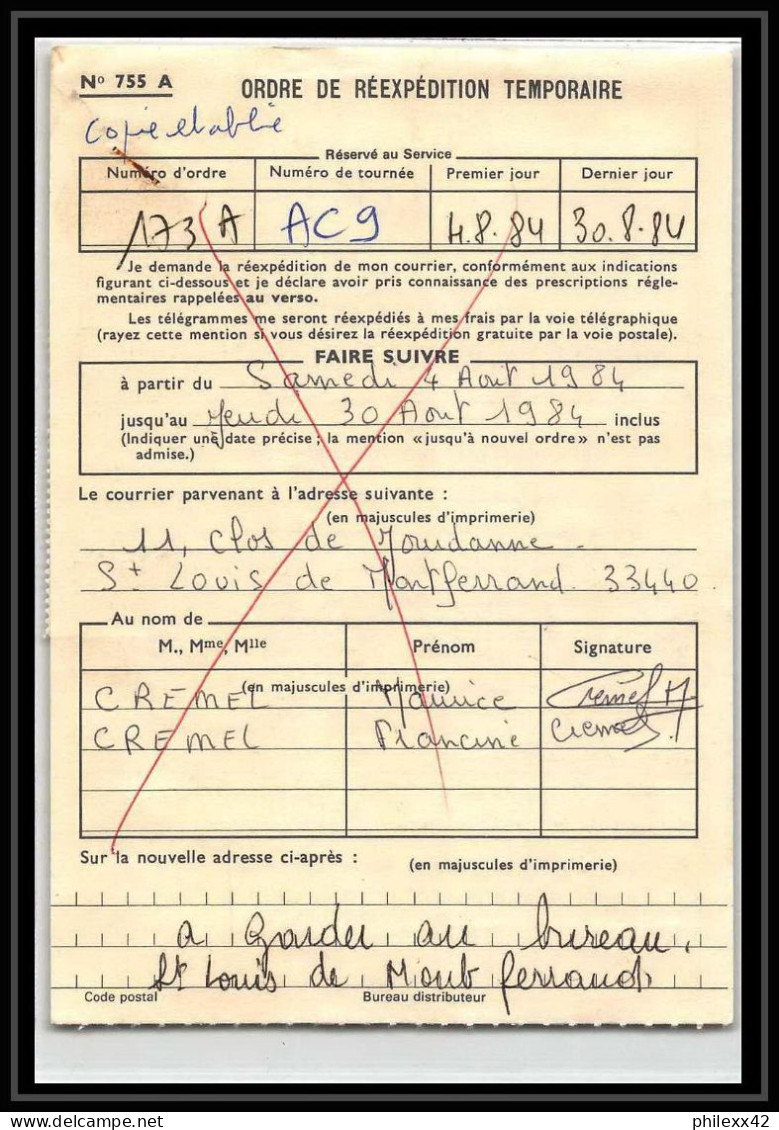 N° 755 A
ORDRE DE RÉEXPÉDITION TEMPORAIRE
Copie établie
Réservé au Service
Numéro d'ordre Numéro de tournée Premier jour Dernier jour
173 A AC9 4.8.84 30.8.84
Je demande la réexpédition de mon courrier, conformément aux indications
figurant ci-dessous et je déclare avoir pris connaissance des prescriptions régle-
mentaires rappelées au verso.
Les télégrammes me seront réexpédiés à mes frais par la voie télégraphique
(rayez cette mention si vous désirez la réexpédition gratuite par la voie postale).
FAIRE SUIVRE
à partir du Samedi 4 Aout 1984
jusqu'au Jeudi 30 Aout 1984 inclus
(Indiquer une date précise ; la mention «jusqu'à nouvel ordre» n'est pas
admise.)
Le courrier parvenant à l'adresse suivante :
(en majuscules d'imprimerie)
11, Clos de
St Louis de Montferrand. 33440
Au nom de
M., Mme, Mlle Prénom Signature
(en majuscules d'imprimerie)
CREMEL Maurice Cremel M
CREMEL Francine Cremel F
Sur la nouvelle adresse ci-après : (en majuscules d'imprimerie)
a garder au bureau.
St Louis de Mont ferrand
Code postal Bureau distributeur
philexx42